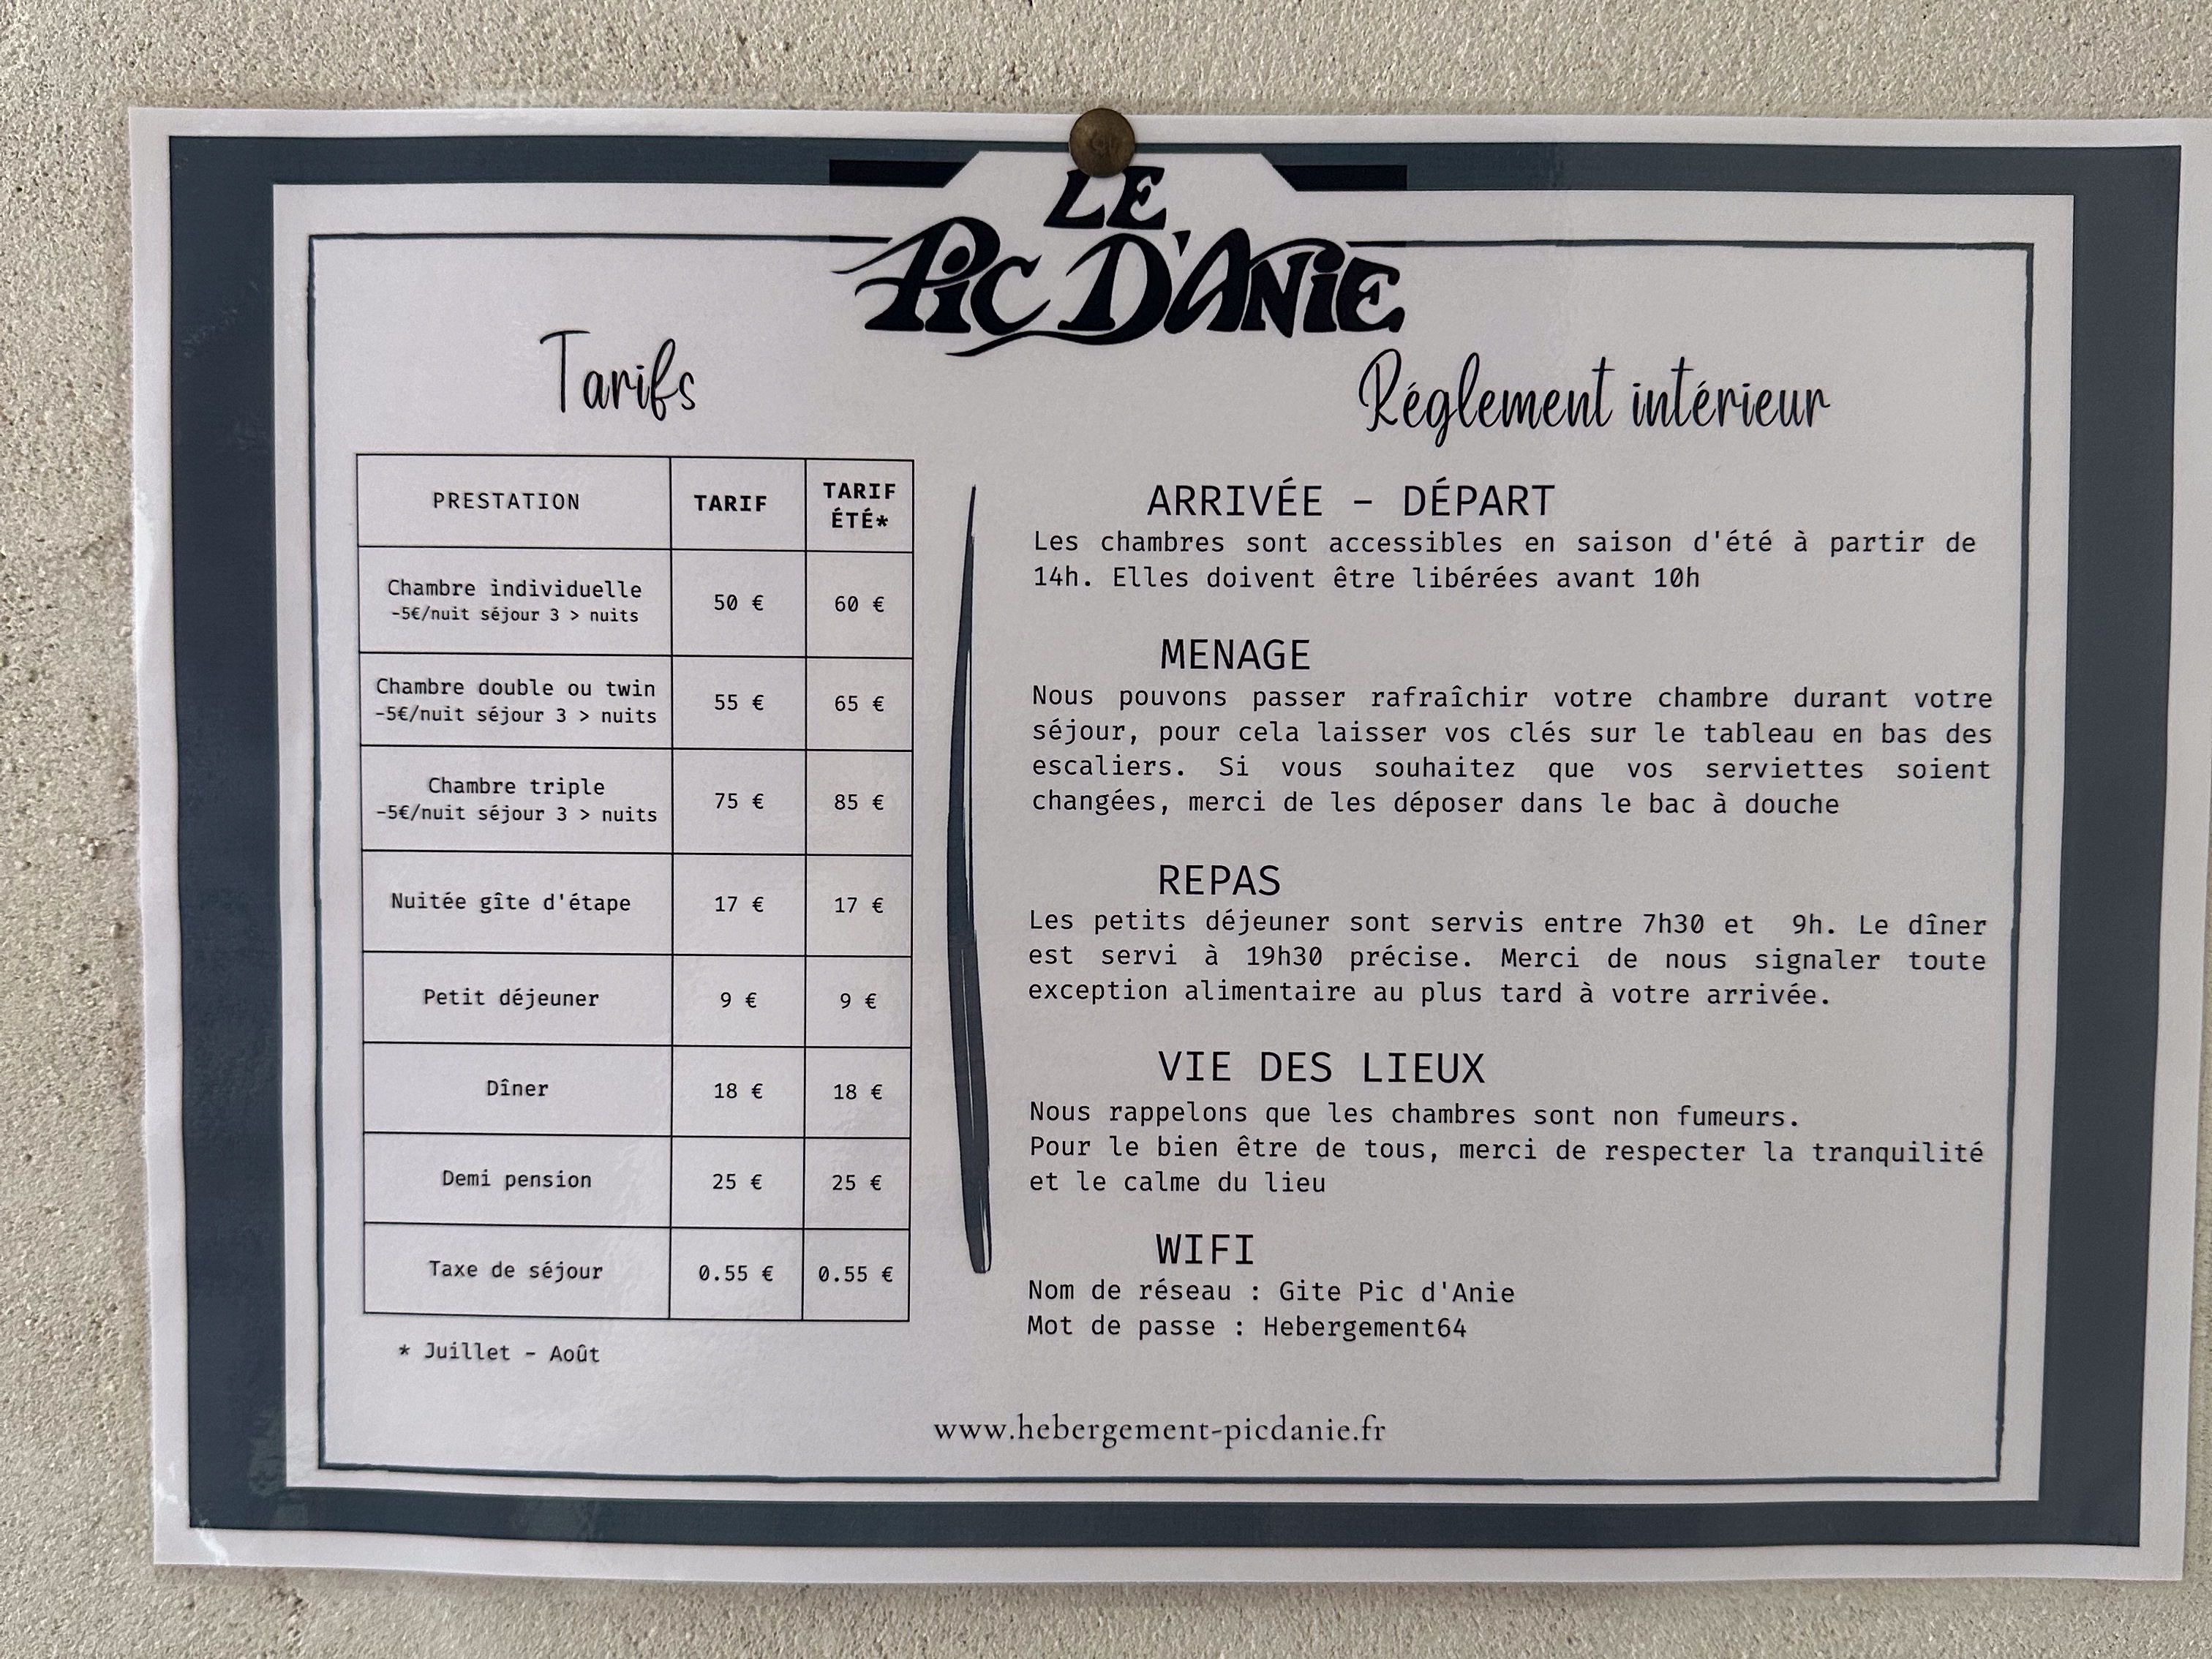 LE
PiC D'ANiE
Tarifs
PRESTATION TARIF TARIF ÉTÉ*
Chambre individuelle 50 € 60 €
-5€/nuit séjour 3 > nuits
Chambre double ou twin 55 € 65 €
-5€/nuit séjour 3 > nuits
Chambre triple 75 € 85 €
-5€/nuit séjour 3 > nuits
Nuitée gîte d'étape 17 € 17 €
Petit déjeuner 9 € 9 €
Dîner 18 € 18 €
Demi pension 25 € 25 €
Taxe de séjour 0.55 € 0.55 €
* Juillet - Août
Réglement intérieur
ARRIVÉE - DÉPART
Les chambres sont accessibles en saison d'été à partir de
14h. Elles doivent être libérées avant 10h
MENAGE
Nous pouvons passer rafraîchir votre chambre durant votre
séjour, pour cela laisser vos clés sur le tableau en bas des
escaliers. Si vous souhaitez que vos serviettes soient
changées, merci de les déposer dans le bac à douche
REPAS
Les petits déjeuner sont servis entre 7h30 et 9h. Le dîner
est servi à 19h30 précise. Merci de nous signaler toute
exception alimentaire au plus tard à votre arrivée.
VIE DES LIEUX
Nous rappelons que les chambres sont non fumeurs.
Pour le bien être de tous, merci de respecter la tranquilité
et le calme du lieu
WIFI
Nom de réseau : Gite Pic d'Anie
Mot de passe : Hebergement64
www.hebergement-picdanie.fr